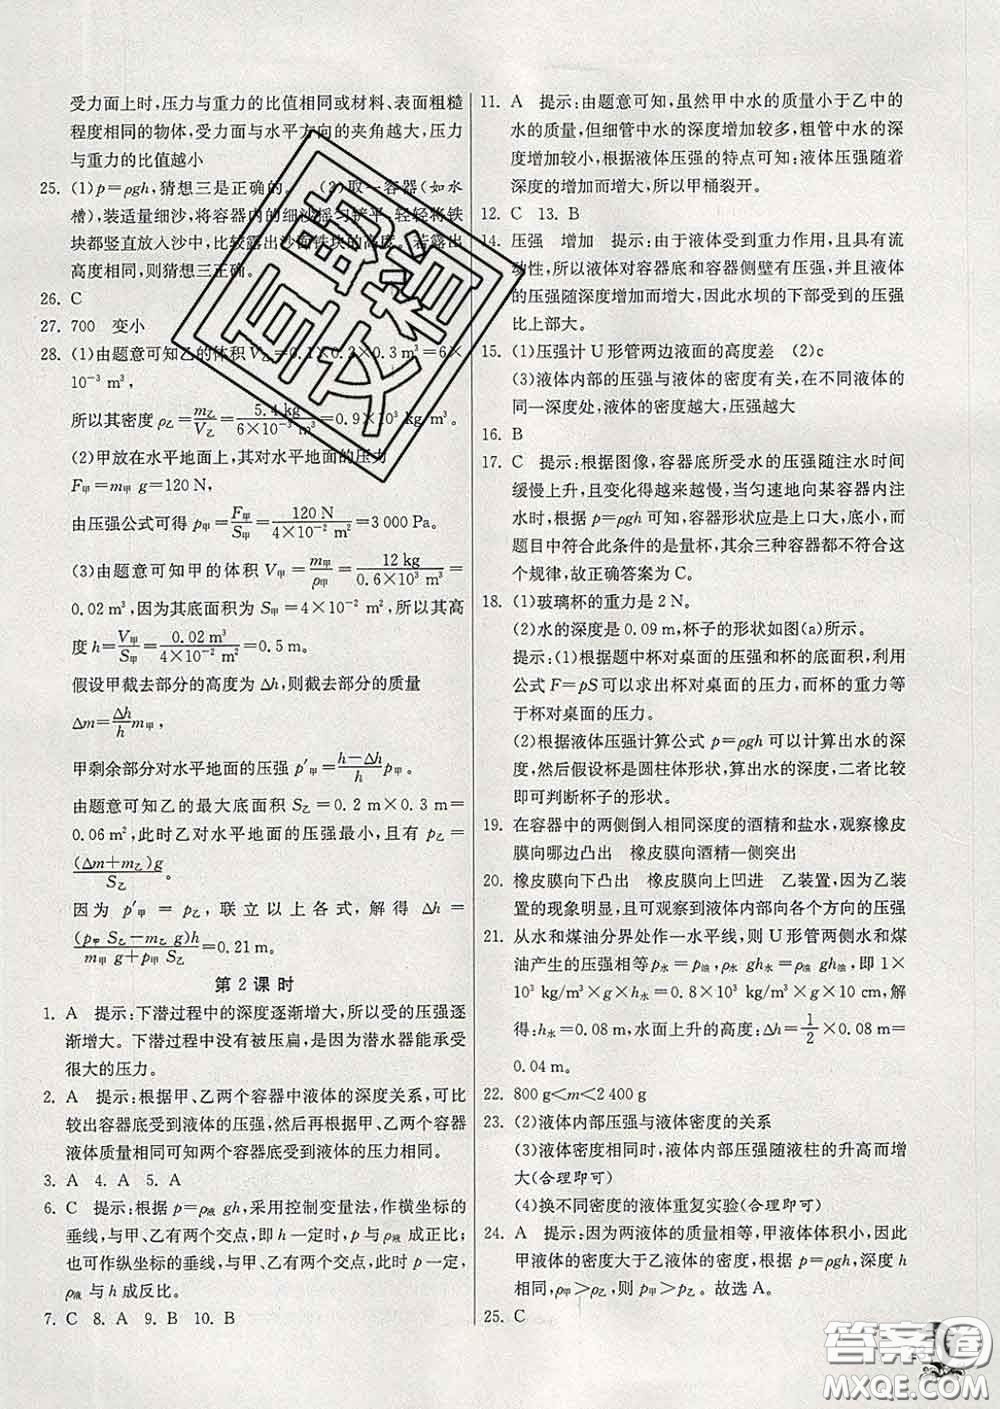 受力面上时,压力与重力的比值相同或材料、表面粗糙
程度相同的物体,受力面与水平方向的夹角越大,压力
与重力的比值越小
25. (1)p=ρgh,猜想三是正确的。 (2)取一容器(如水
槽),装适量细沙,将容器内的细沙摇匀铲平,轻轻将铁
块都竖直放入沙中,比较露出沙面铁块的高度。若露出
高度相同,则猜想三正确。
26. C
27. 700 变小
28. (1)由题意可知乙的体积V乙=0.1×0.2×0.3 m³=6×
10⁻³ m³,
所以其密度 ρ乙=m乙/V乙=5.4 kg/(6×10⁻³ m³)=0.9×10³ kg/m³。
(2)甲放在水平地面上,其对水平地面的压力
F甲=m甲 g=120 N,
由压强公式可得 p甲=F甲/S甲=120 N/(4×10⁻² m²)=3 000 Pa。
(3)由题意可知甲的体积 V甲=m甲/ρ甲=12 kg/(0.6×10³ m³)=
0.02 m³,因为其底面积为 S甲=4×10⁻² m²,所以其高
度 h=V甲/S甲=0.02 m³/(4×10⁻² m²)=0.5 m。
假设甲截去部分的高度为 Δh,则截去部分的质量
Δm=(Δh/h)m甲,
甲剩余部分对水平地面的压强 p′甲=((h−Δh)/h)p甲。
由题意可知乙的最大底面积 S乙=0.2 m×0.3 m=
0.06 m²,此时乙对水平地面的压强最小,且有 p乙=
(Δm+m乙)g/S乙。
因为 p′甲=p乙,联立以上各式,解得 Δh=
(p甲 S乙−m乙 g)h/(m甲 g+p甲 S乙)=0.21 m。
第 2 课时
1. A 提示:下潜过程中的深度逐渐增大,所以受的压强逐
渐增大。下潜过程中没有被压扁,是因为潜水器能承受
很大的压力。
2. A 提示:根据甲、乙两个容器中液体的深度关系,可比
较出容器底受到液体的压强,然后再根据甲、乙两个容器
液体质量相同可知两个容器底受到液体的压力相同。
3. A 4. A 5. A
6. C 提示:根据 p=ρ液 gh,采用控制变量法,作横坐标的
垂线,与甲、乙有两个交点,即 h 一定时,p 与ρ液 成正比;
也可作纵坐标的垂线,与甲、乙有两个交点,此时 p 一定,
ρ液 与 h 成反比。
7. C 8. A 9. B 10. B
11. A 提示:由题意可知,虽然甲中水的质量小于乙中的
水的质量,但细管中水的深度增加较多,粗管中水的深
度增加较小,根据液体压强的特点可知:液体压强随着
深度的增加而增大,所以甲桶裂开。
12. C 13. B
14. 压强 增加 提示:由于液体受到重力作用,且具有流
动性,所以液体对容器底和容器侧壁有压强,并且液体
的压强随深度增加而增大,因此水坝的下部受到的压强
比上部大。
15. (1)压强计 U 形管两边液面的高度差 (2)c
(3)液体内部的压强与液体的密度有关,在不同液体的
同一深度处,液体的密度越大,压强越大
16. B
17. C 提示:根据图像,容器底所受水的压强随注水时间
缓慢上升,且变化得越来越慢,当匀速地向某容器内注
水时,根据 p=ρgh 可知,容器形状应是上口大,底小,而
题目中符合此条件的是量杯,其余三种容器都不符合这
个规律,故正确答案为 C。
18. (1)玻璃杯的重力是 2 N。
(2)水的深度是 0.09 m,杯子的形状如图(a)所示。
提示:(1)根据题中杯对桌面的压强和杯的底面积,利用
公式 F=pS 可以求出杯对桌面的压力,而杯的重力等
于杯对桌面的压力。
(2)根据液体压强计算公式 p=ρgh 可以计算出水的深
度,然后假设杯是圆柱体形状,算出水的深度,二者比较
即可判断杯子的形状。
19. 在容器中的两侧倒人相同深度的酒精和盐水,观察橡皮
膜向哪边凸出 橡皮膜向酒精一侧突出
20. 橡皮膜向下凸出 橡皮膜向上凹进 乙装置,因为乙装
置的现象明显,且可观察到液体内部向各个方向的压强
21. 从水和煤油分界处作一水平线,则 U 形管两侧水和煤
油产生的压强相等 p水=p油,ρ水 gh水=ρ油 gh油,即 1×
10³ kg/m³×g×h水=0.8×10³ kg/m³×g×10 cm,解
得:h水=0.08 m,水面上升的高度:Δh=1/2×0.08 m=
0.04 m。
22. 800 g<m<2 400 g
23. (2)液体内部压强与液体密度的关系
(3)液体密度相同时,液体内部压强随液柱的升高而增
大(合理即可)
(4)换不同密度的液体重复实验(合理即可)
24. A 提示:因为两液体的质量相等,甲液体体积小,因此
甲液体的密度大于乙液体的密度,根据 p=ρgh,深度 h
相同,ρ甲>ρ乙,则 p甲>p乙。故选 A。
25. C
答案圈
MXQE.COM